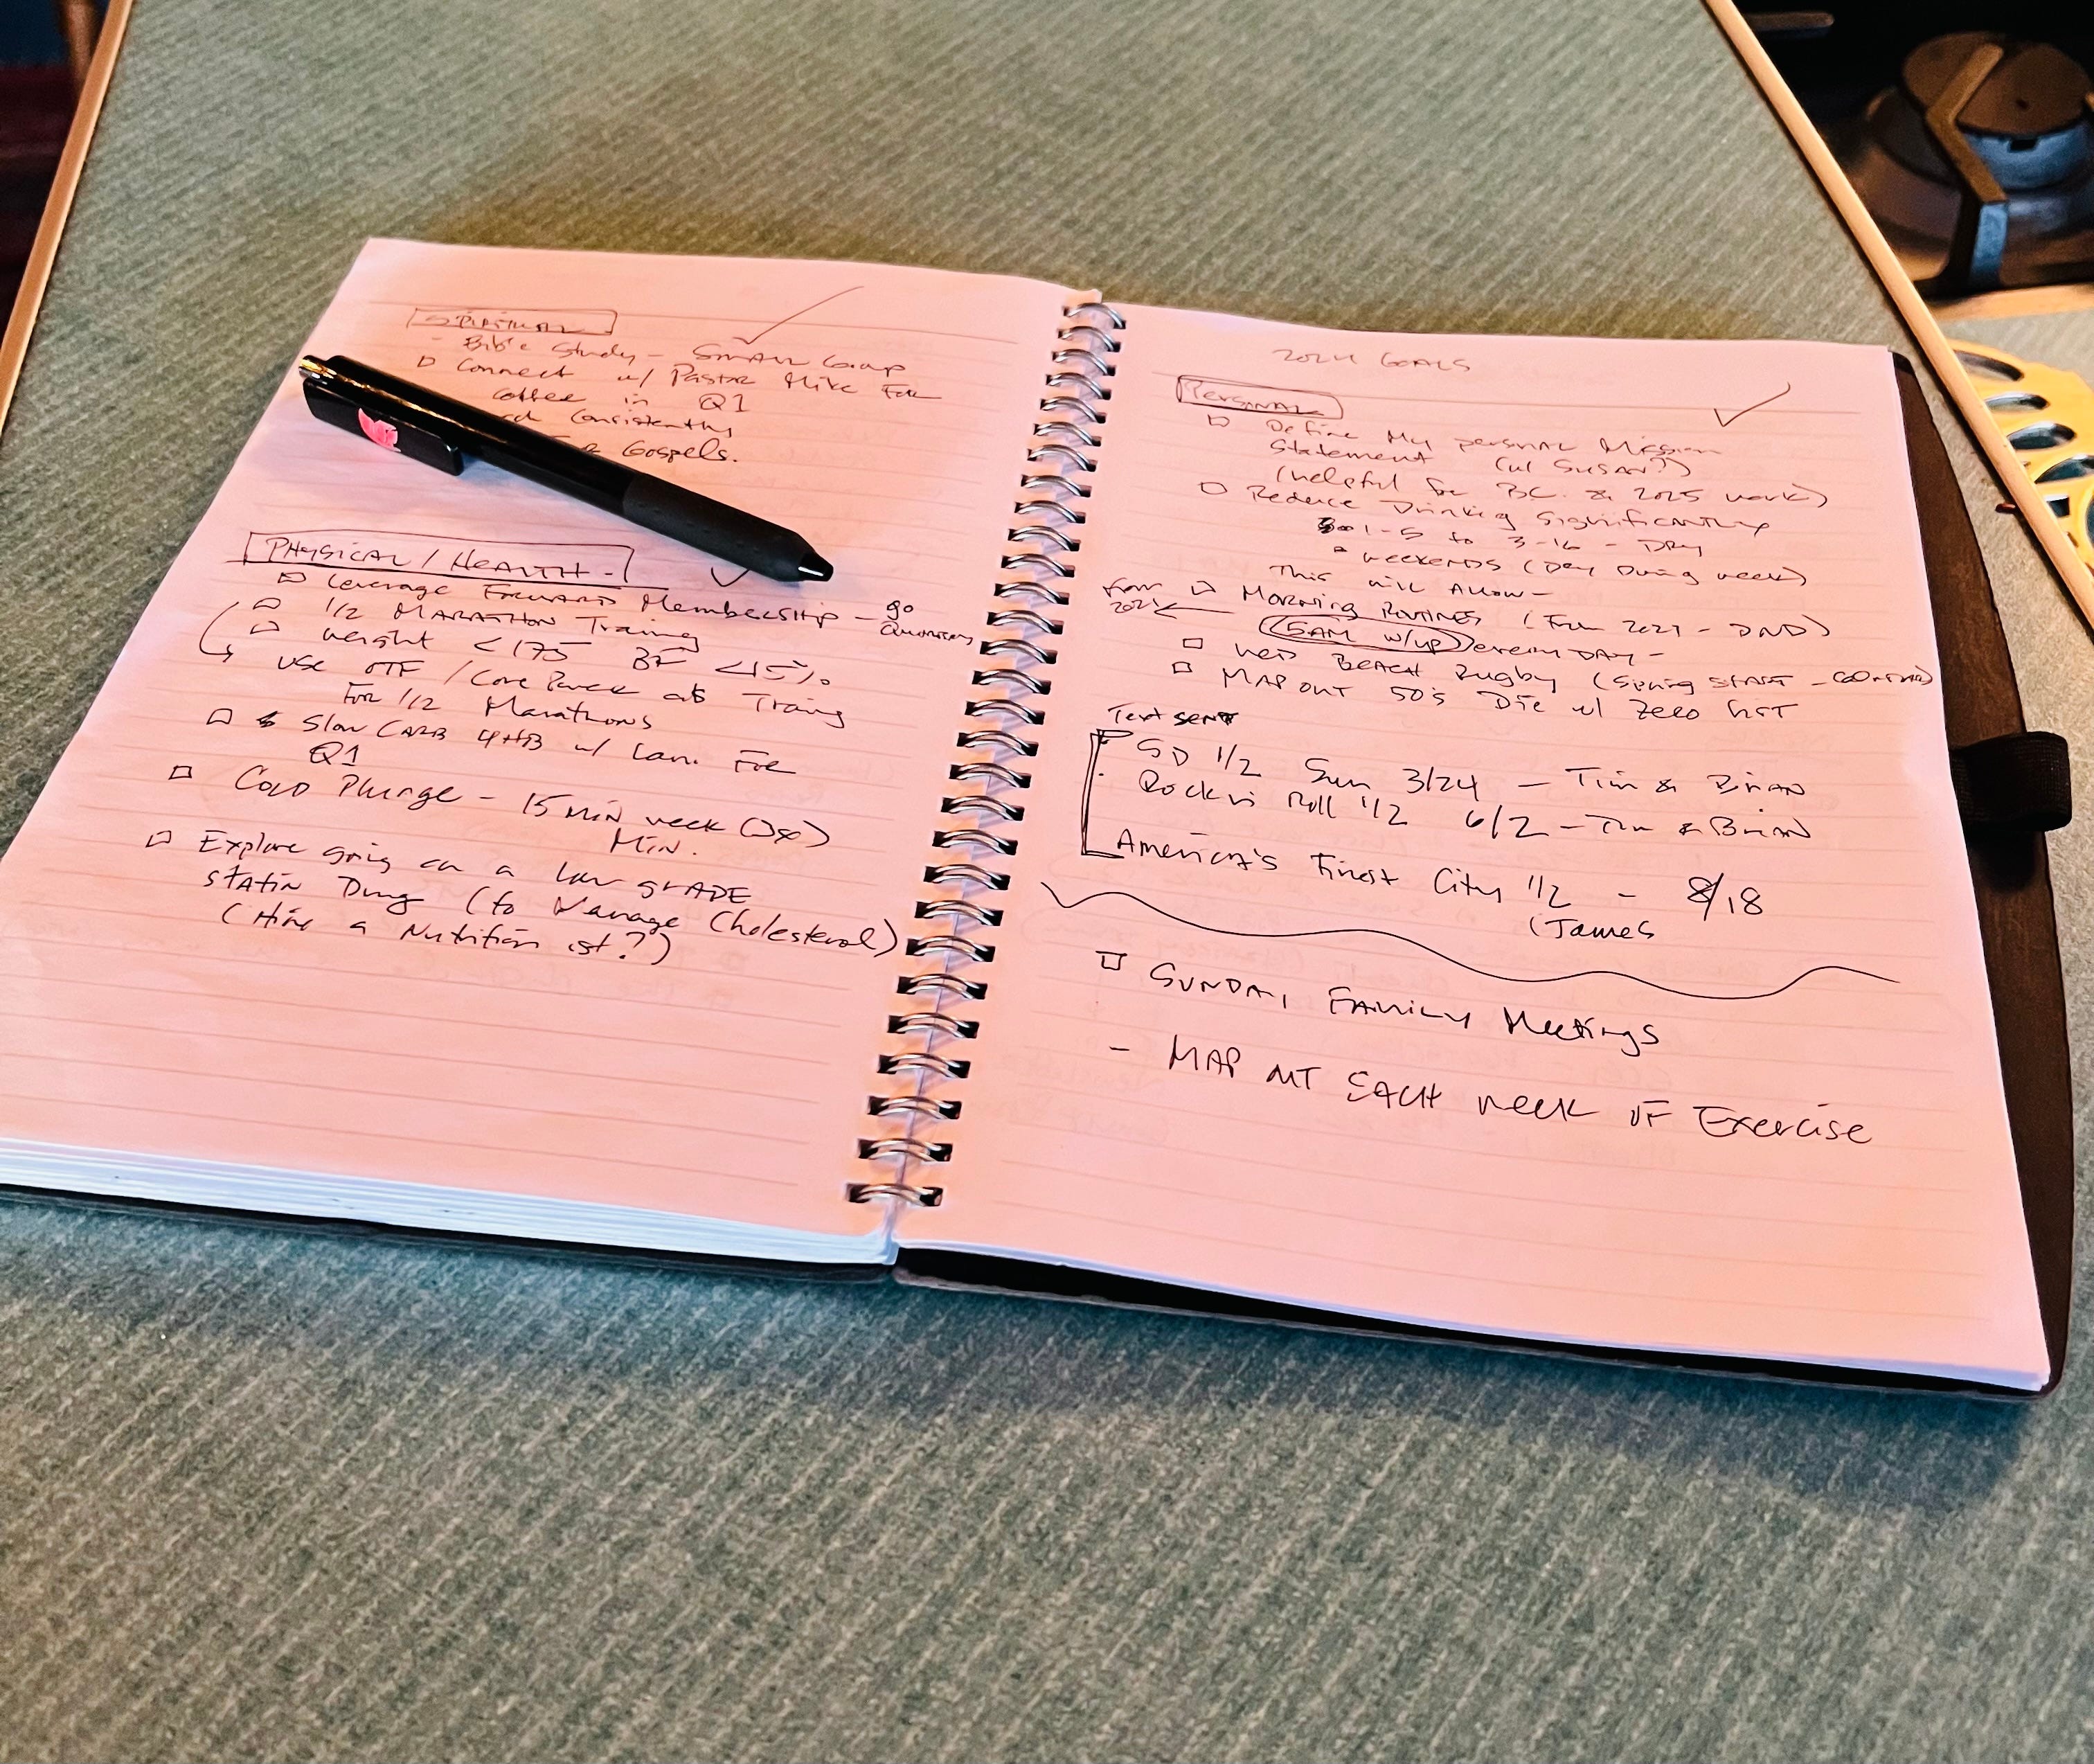 Spiritual
- Bible Study - Small Group
Connect w/ Pastor Mike For
coffee in Q1
Consistently
Gospels.
PHYSICAL / HEALTH -
Leverage Forward Membership - go
Quarterly
1/2 MARATHON Training
Weight <175 BF <15%
USE OTF / as Training
For 1/2 Marathons
Slow CARB 4HB w/ For
Q1
Cold Plunge - 15 min week
Min.
Explore going on a low grADE
stAtin Drug (to Manage Cholesterol)
(Hire a Nutrition ist?)
2024 GOALS
Personal
Define My personal Mission
Statement (w/ SUSAN?)
(helpful for BC. & 2025 work)
Reduce Drinking Significantly
1-5 to 3-16 - Dry
weekends (Dry During week)
This will Allow -
From
2021
Morning Routines (From 2021 - DND)
5AM w/up everyday -
BEACH Rugby (Spring START -
MAP OUT 50's w/ Zero
Text sent
SD 1/2 Sun 3/24 - Tim & Brian
Rock n Roll 1/2 6/2 - Tim & Brian
America's Finest City 1/2 - 8/18
(James
SUNDAY FAMILY Meetings
- MAP OUT EACH week OF Exercise